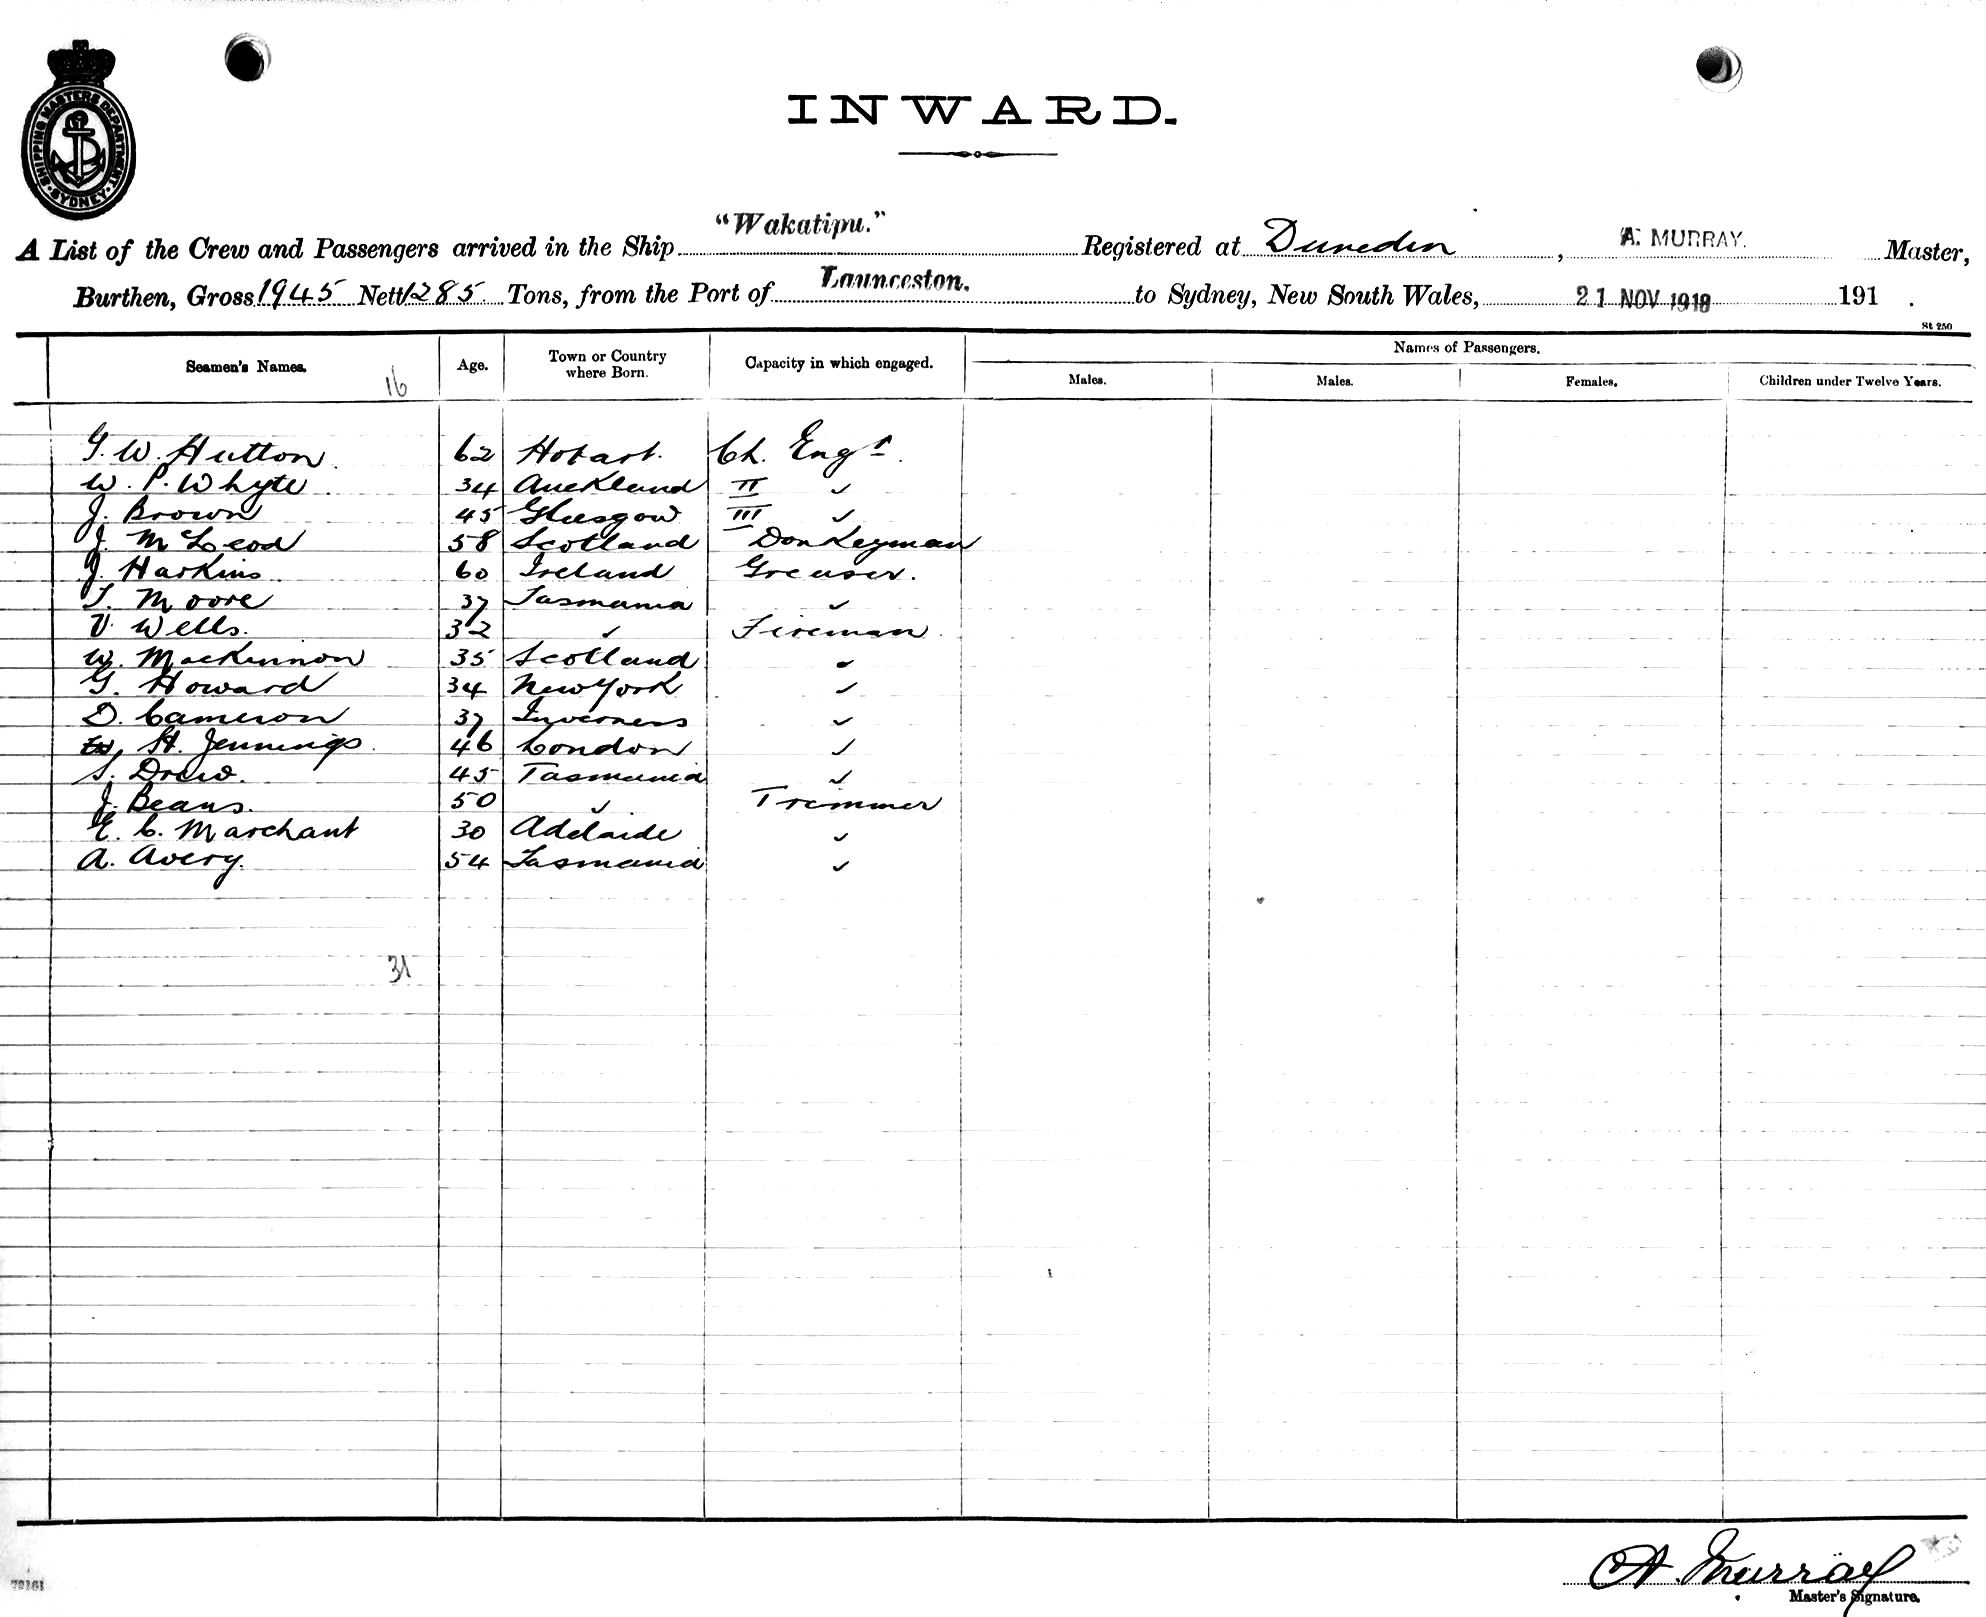 SHIPPING MASTERS DEPARTMENT
SYDNEY
INWARD.
A List of the Crew and Passengers arrived in the Ship "Wakatipu." Registered at Dunedin, A. MURRAY. Master,
Burthen, Gross 1945 Nett 1285 Tons, from the Port of Launceston. to Sydney, New South Wales, 21 NOV 1918 191 .
St 250
Seamen's Names. Age. Town or Country where Born. Capacity in which engaged. Names of Passengers.
Males. Males. Females. Children under Twelve Years.
16
G. W. Hutton. 62 Hobart. Ch. Engr.
W. P. Whyte. 34 Auckland II ✓
J. Brown 45 Glasgow III ✓
J. McLeod 58 Scotland Donkeyman
J. Harkins. 60 Ireland Greaser.
T. Moore 37 Tasmania ✓
V. Wells. 32 ✓ Fireman.
W. Mackinnon 35 Scotland ✓
G. Howard 34 New York ✓
D. Cameron 37 Inverness ✓
H. Jennings. 46 London ✓
S. Drew. 45 Tasmania ✓
J. Beans. 50 ✓ Trimmer
E. C. Marchant 30 Adelaide ✓
A. Avery. 54 Tasmania ✓
31
A. Murray
Master's Signature.